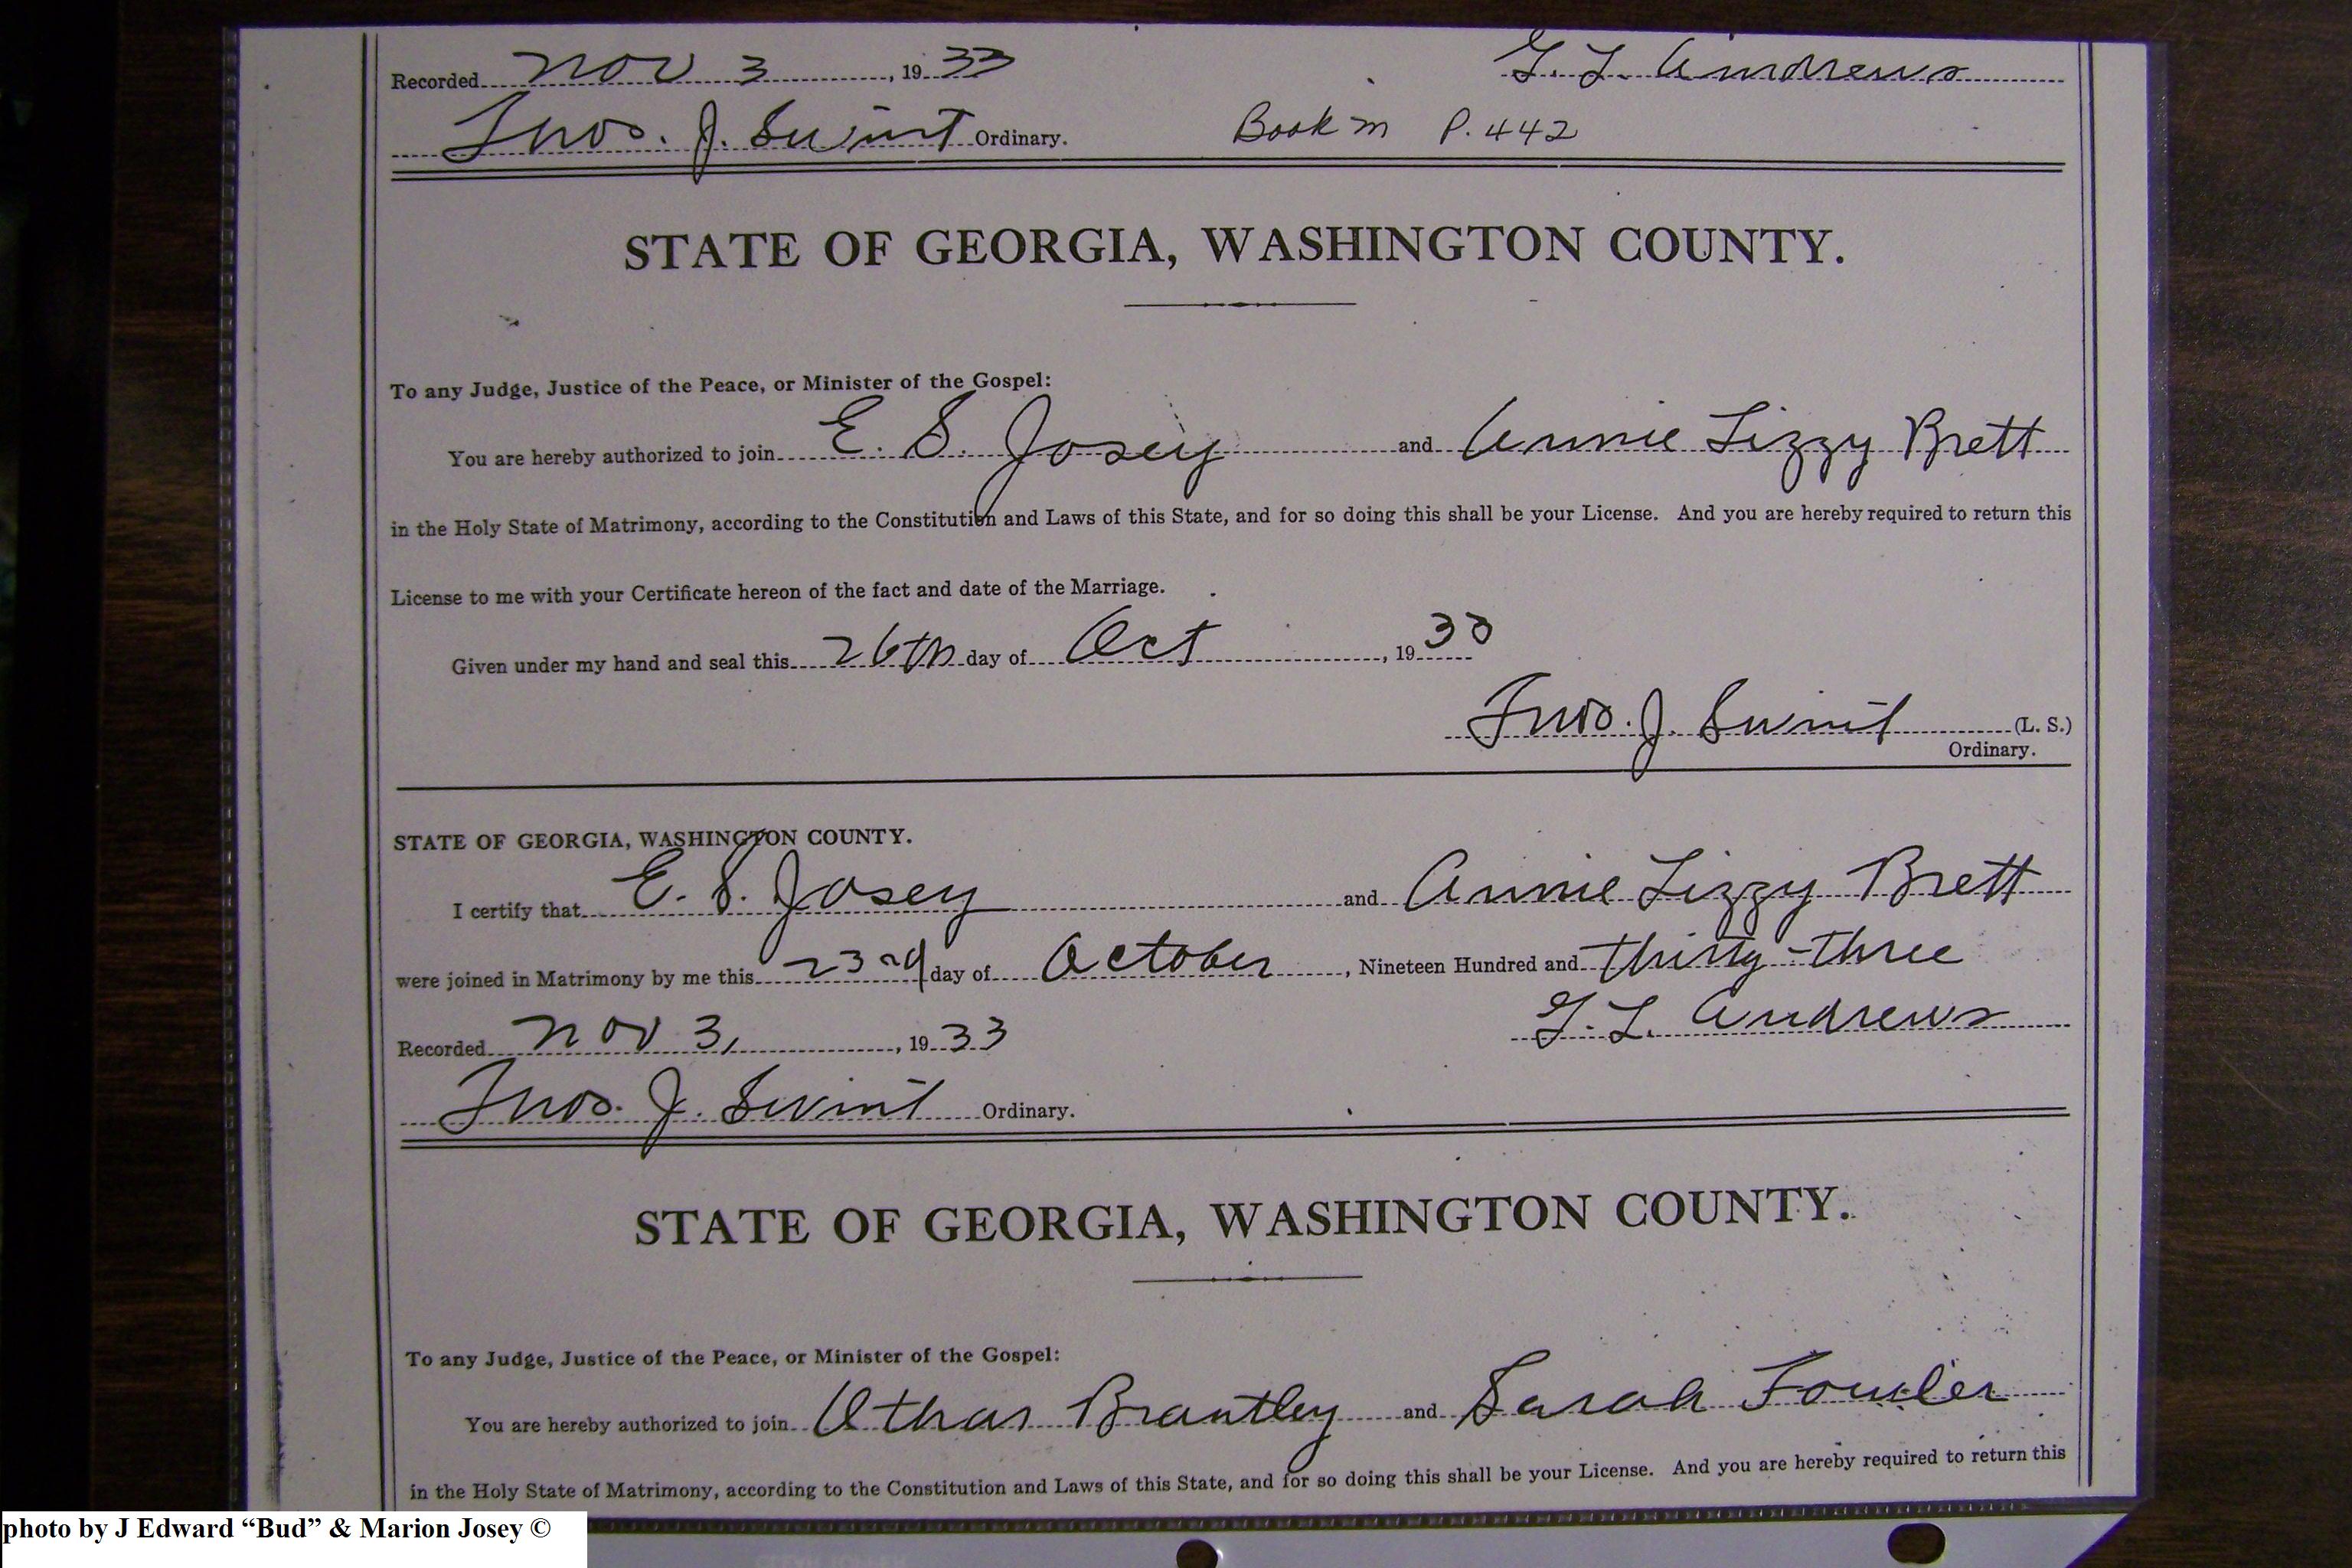 Recorded Nov 3, 1933 G. L. Andrews
Thos. J. Swint Ordinary. Book M P. 442
STATE OF GEORGIA, WASHINGTON COUNTY.
To any Judge, Justice of the Peace, or Minister of the Gospel:
You are hereby authorized to join E. S. Josey and Annie Lizzy Brett
in the Holy State of Matrimony, according to the Constitution and Laws of this State, and for so doing this shall be your License. And you are hereby required to return this
License to me with your Certificate hereon of the fact and date of the Marriage.
Given under my hand and seal this 26th day of Oct, 1933
Thos. J. Swint (L. S.)
Ordinary.
STATE OF GEORGIA, WASHINGTON COUNTY.
I certify that E. S. Josey and Annie Lizzy Brett
were joined in Matrimony by me this 23rd day of October, Nineteen Hundred and thirty-three
Recorded Nov 3, 1933 G. L. Andrews
Thos. J. Swint Ordinary.
STATE OF GEORGIA, WASHINGTON COUNTY.
To any Judge, Justice of the Peace, or Minister of the Gospel:
You are hereby authorized to join Brantley and Sarah Fowler
in the Holy State of Matrimony, according to the Constitution and Laws of this State, and for so doing this shall be your License. And you are hereby required to return this
photo by J Edward “Bud” & Marion Josey ©